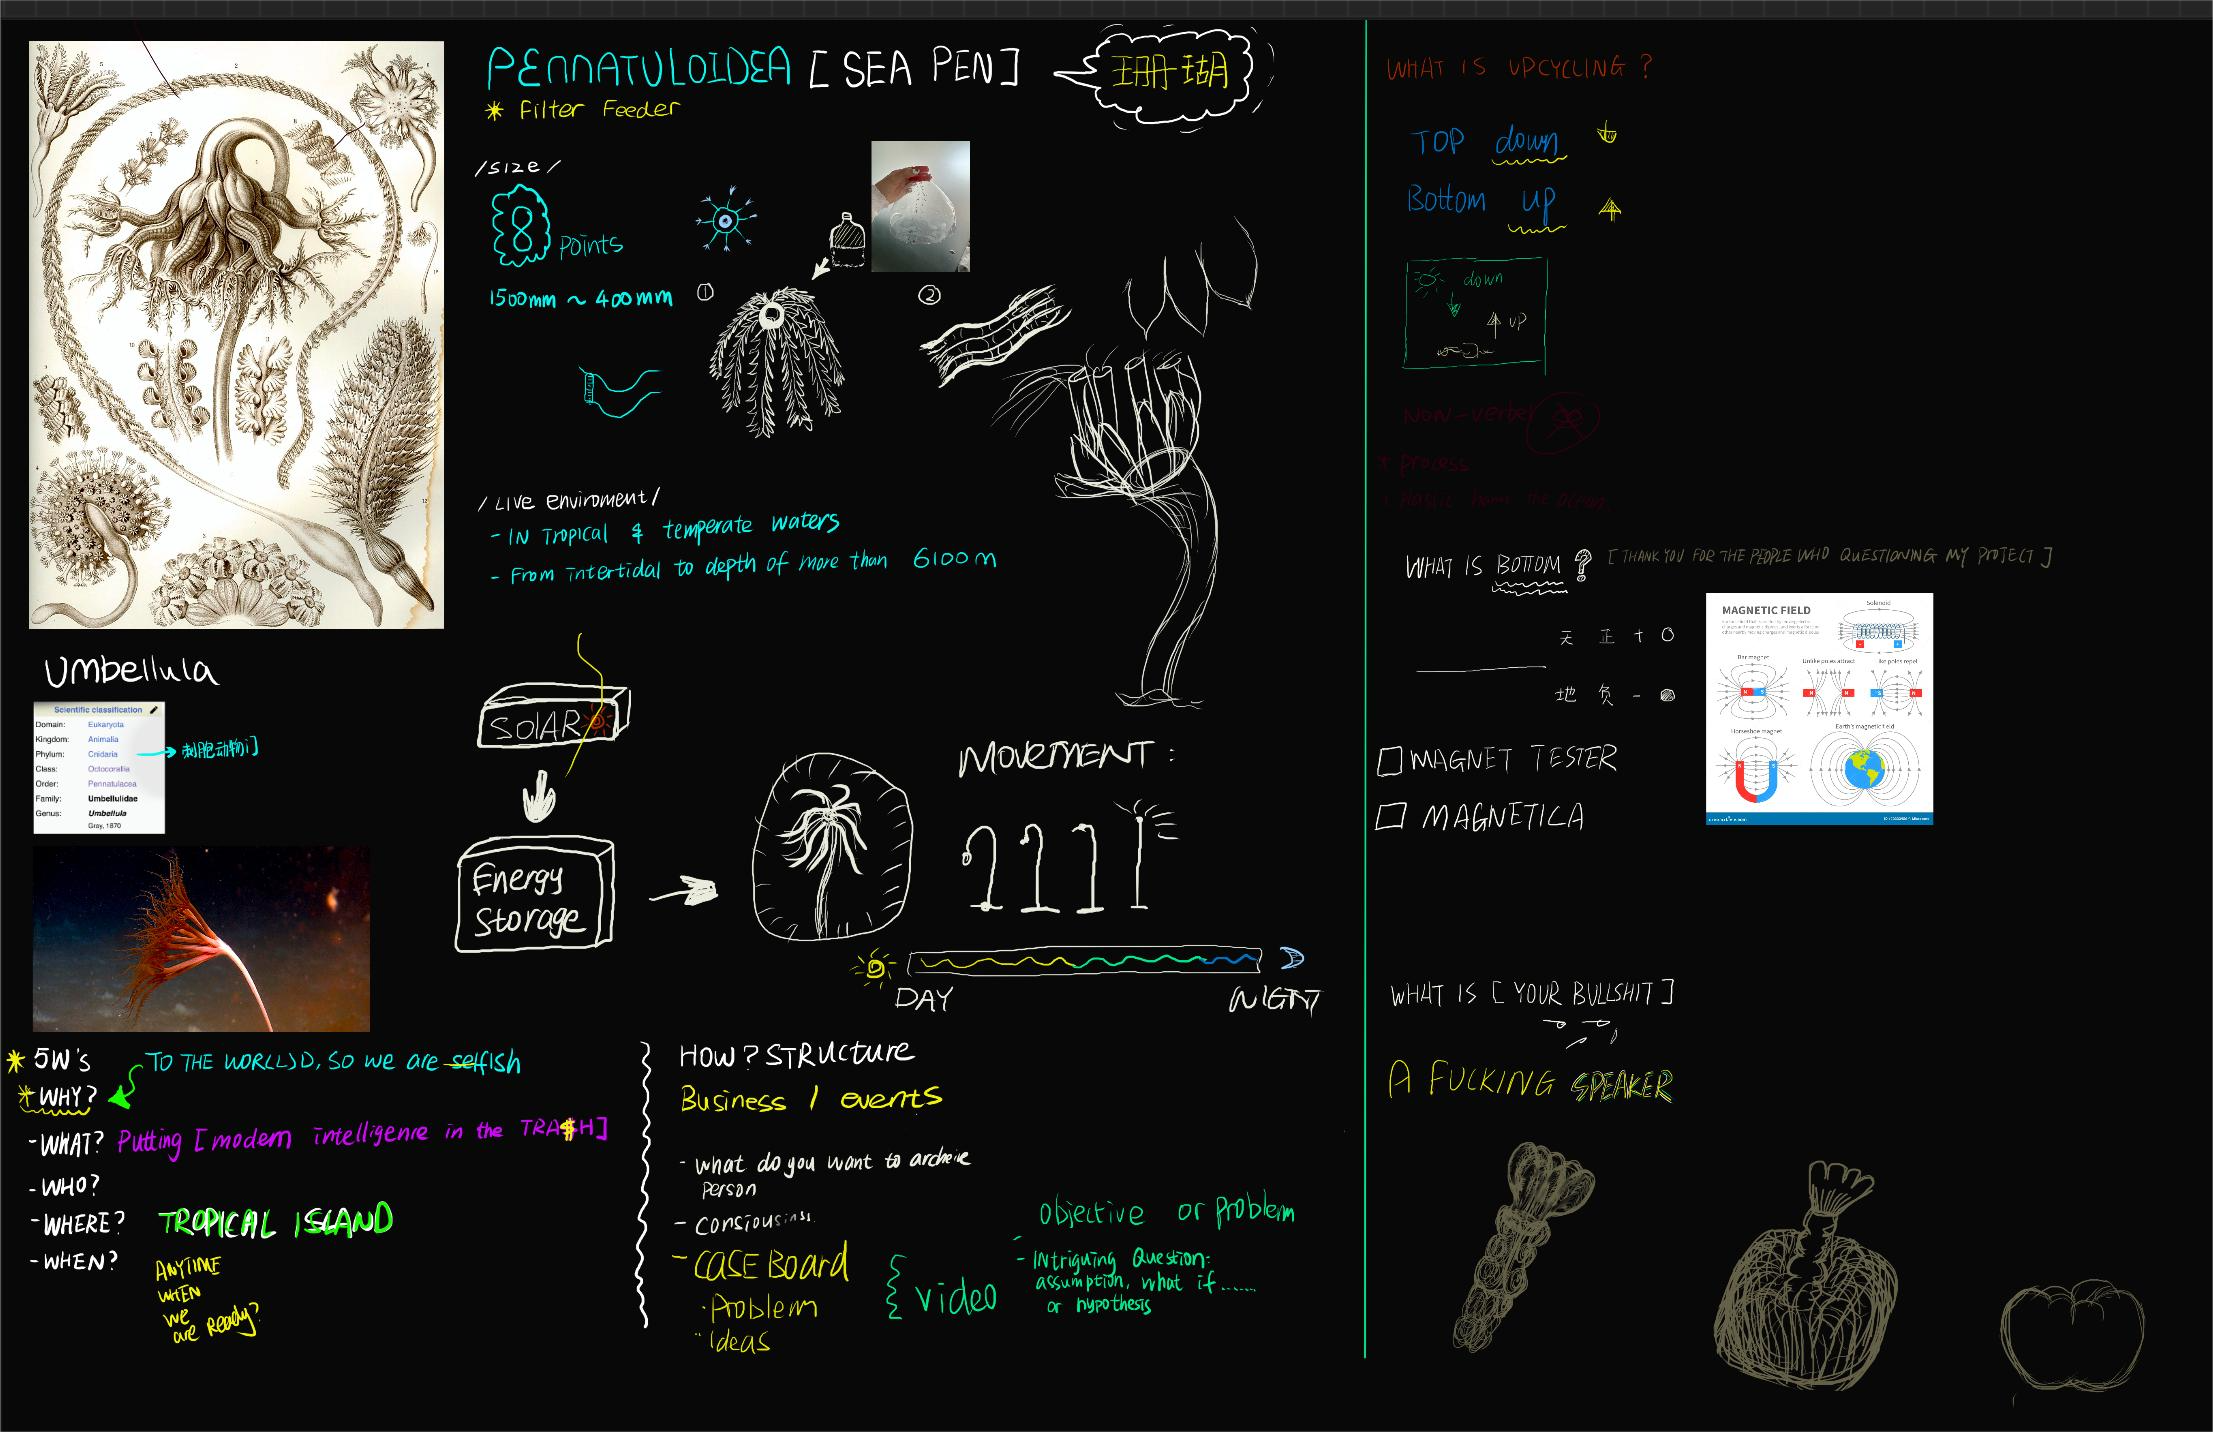 PENNATULOIDEA [ SEA PEN ]
珊瑚
* Filter Feeder
/ Size /
8 points
1500mm ~ 400mm
①
②
/ Live enviroment /
- IN Tropical & temperate waters
- From intertidal to depth of more than 6100m
Umbellula
Scientific classification
Domain: Eukaryota
Kingdom: Animalia
Phylum: Cnidaria
刺胞动物门
Class: Octocorallia
Order: Pennatulacea
Family: Umbellulidae
Genus: Umbellula
Gray, 1870
SOLAR
Energy
Storage
MOVEMENT :
DAY
NIGHT
* 5W's
TO THE WOR(L)D, SO we are selfish
* WHY?
- WHAT? Putting [ modern intelligenre in the TRA$H ]
- WHO?
- WHERE? TROPICAL ISLAND
- WHEN?
ANYTIME
WHEN
we
are Ready?
HOW? STRUcture
Business / events
- what do you want to
person
- CASE Board
· Problem
Ideas
video
objective or problem
- Intriguing Question:
assumption, what if ......
or hypothesis
WHAT IS UPCYCLING ?
TOP down
Bottom up
down
UP
NON-verbel
+ process
Plastic harm the Ocean
WHAT IS BOTTOM ? [ THANK YOU FOR THE PEOPLE WHO QUESTIONING MY PROJECT ]
天 正 + O
地 负 -
MAGNETIC FIELD
Solenoid
Bar magnet
Unlike poles attract
like poles repel
Horseshoe magnet
Earth's magnetic field
MAGNET TESTER
MAGNETICA
WHAT IS [ YOUR BULLSHIT ]
A FUCKING SPEAKER